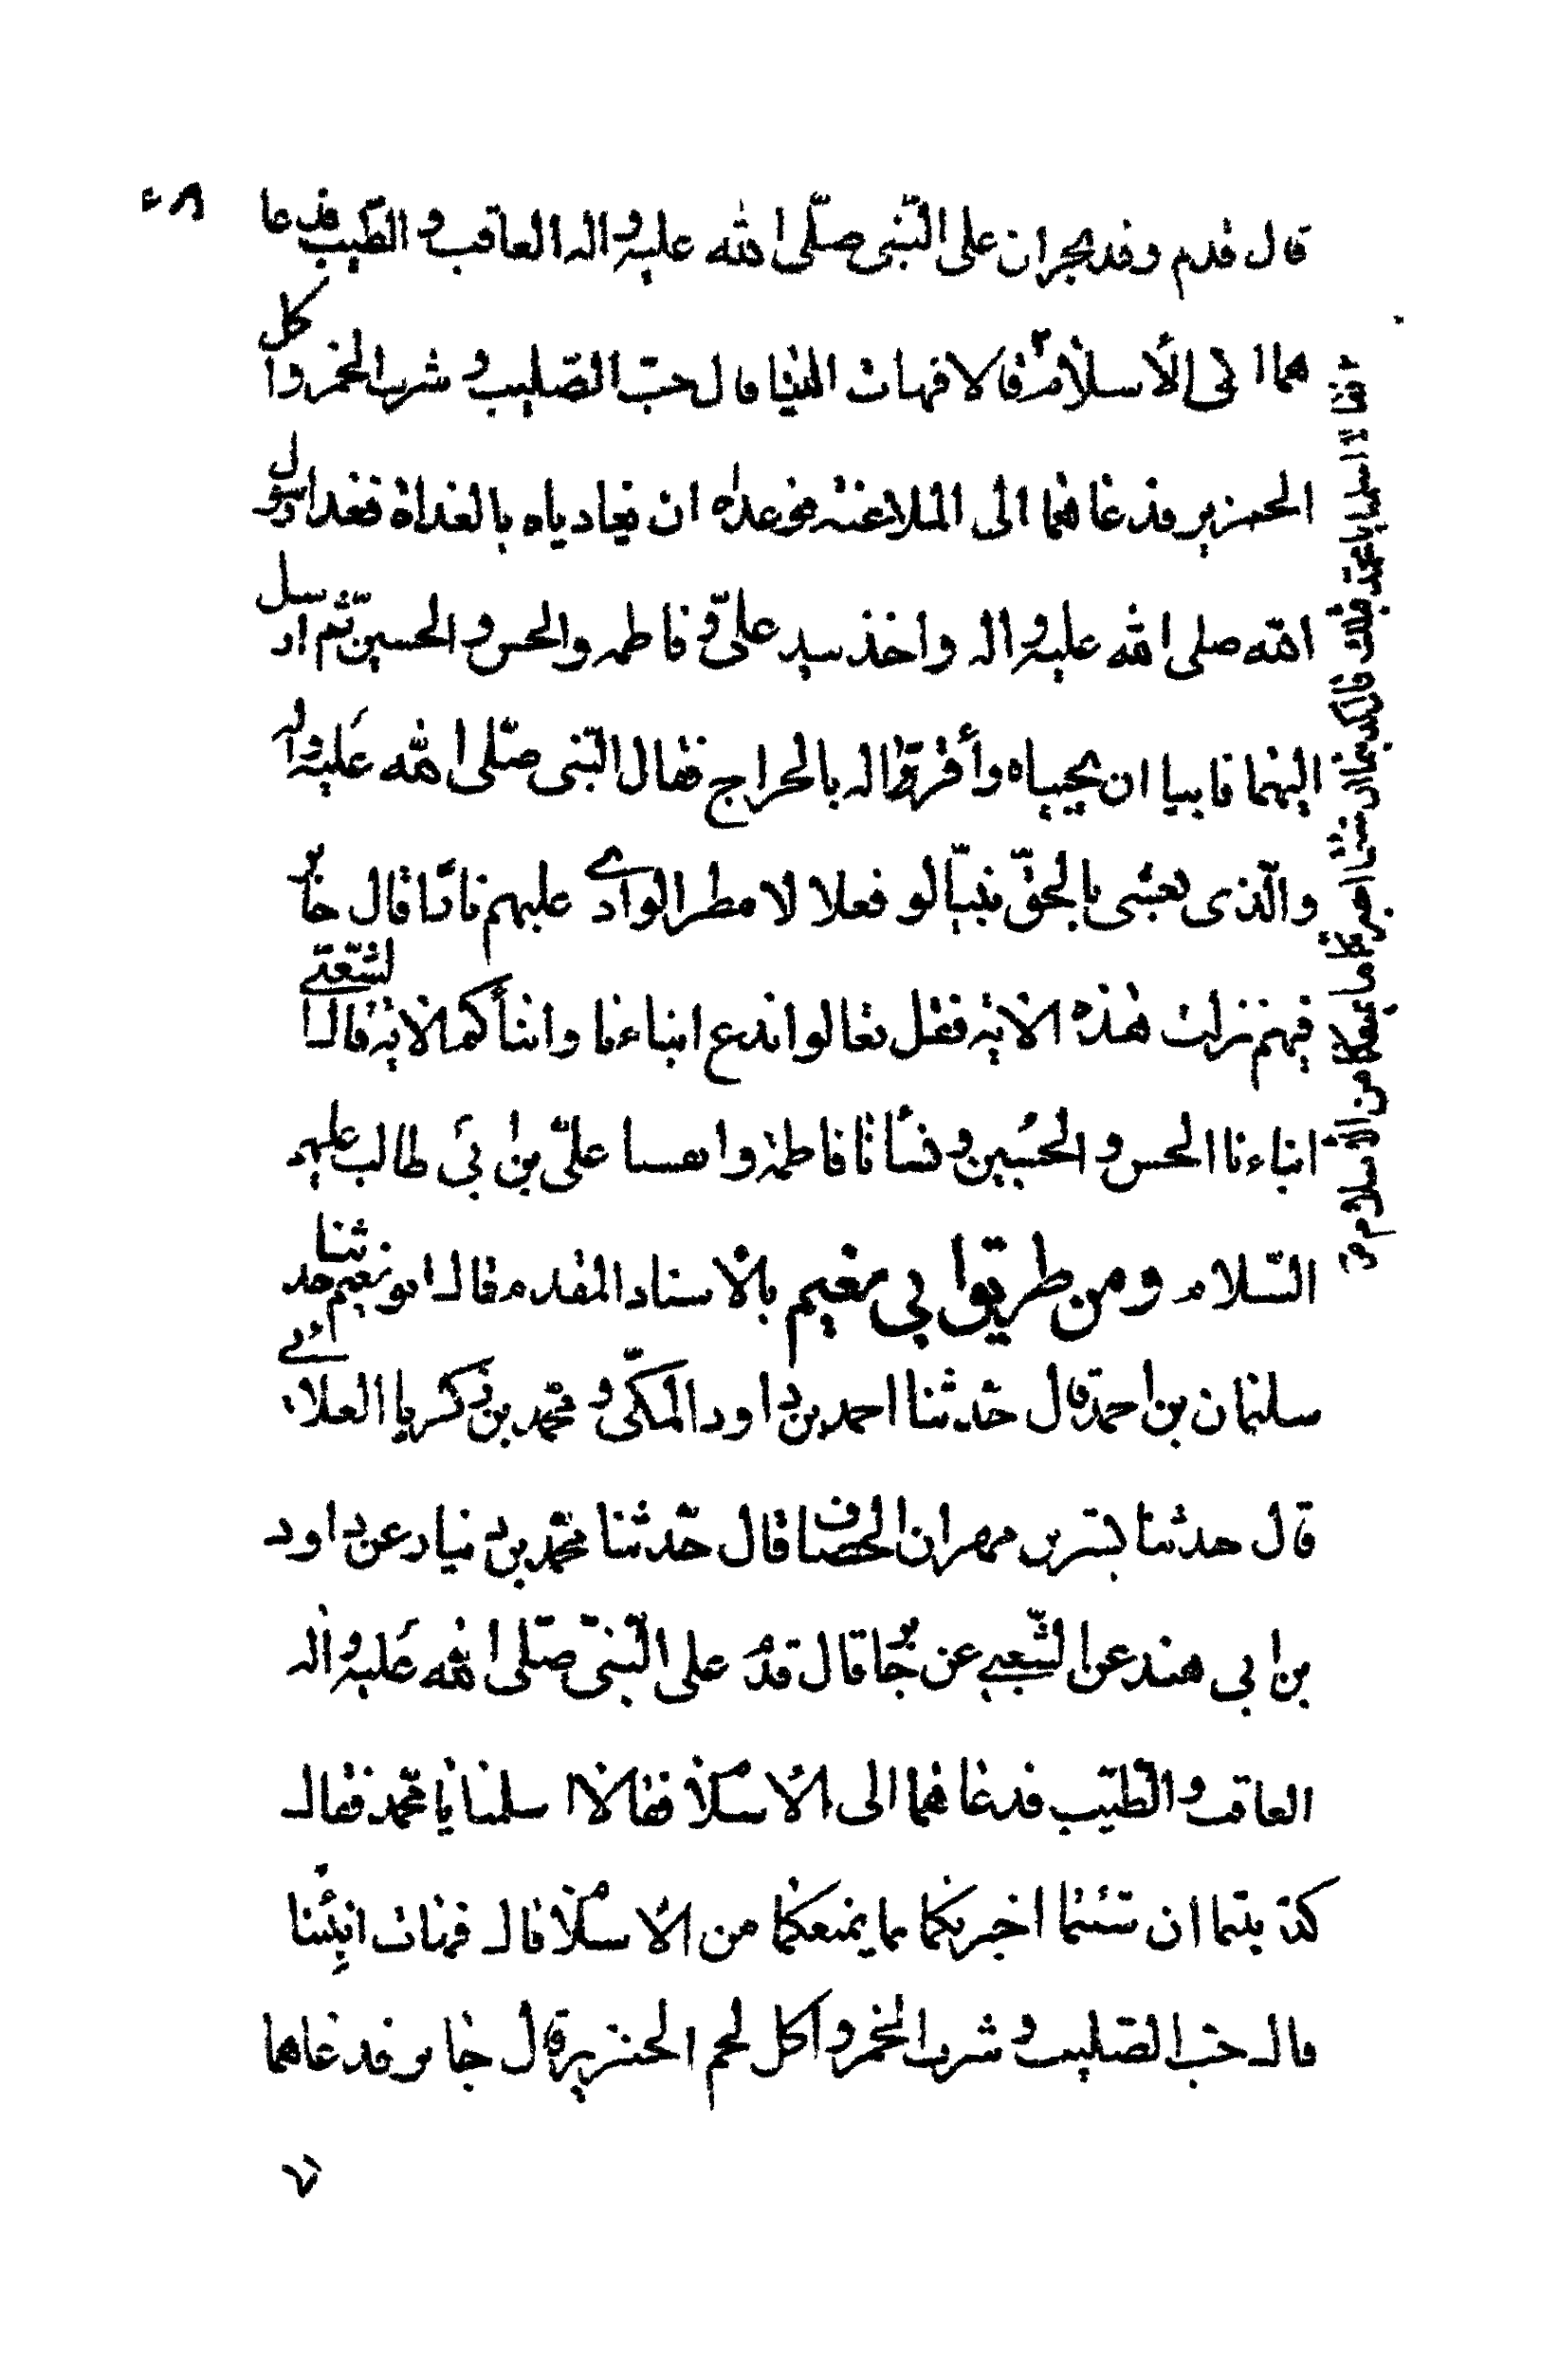 ٤٨
قال قدم وفد نجران على النّبى صلّى الله عليه واله العاقب والطّيب فدعا
هما الى الأسلام قالا فهات انبئنا قال حبّ الصّليب وشرب الخمر واكل
الخنزير فدعاهما الى الملاعنه فوعداه ان يغادياه بالغداة فغدا رسول
الله صلى الله عليه واله واخذ بيد علىّ وفاطمه والحسن والحسين ثم ارسل
اليهما فابيا ان يجيباه وأقرّوا له بالخراج فقال النّبى صلّى الله عليه واله
والّذى بعثنى بالحقّ نبيّا لو فعلا لامطر الوادي عليهم نارًا قال جابر
فيهم نزلت هذه الايه فقل تعالوا ندع ابناءنا وابنأكم الايه قال الشّعبّي
ابناءنا الحسن والحسين ونسأنا فاطمة وانفسنا علىّ بن ابى طالب عليهم
السّلام ومن طريق ابى نعيم بالاسناد المقدم قال ابو نعيم حدثنا
سليمان بن احمد قال حدّثنا احمد بن داود المكّى ومحمّد بن زكريا الغلائي
قال حدثنا بشر بن مهران الخصاف قال حدّثنا محمّد بن دينار عن داود
بن ابى هند عن الشّعبي عن جابر قال قدم على النّبىّ صلى الله عليه واله
العاقب والطّيّب فدعاهما الى الأسلام فقالا اسلمنا يا محمّد فقال
كذبتما ان شئتما اخبرتكما بما يمنعكما من الاسلام قال فهات انبئنا
قال حب الصليب وشرب الخمر واكل لحم الخنزير قال جابر فدعاهما
فقالا اسلمنا يا محمّد قبلك قال كذبتما ان شئتما اخبرتكما ما يمنعكما من الاسلام